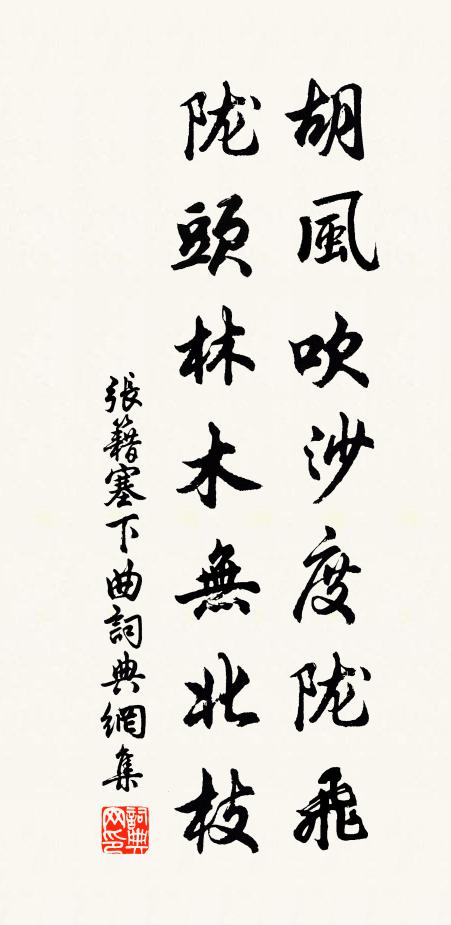 胡風吹沙度陇飛
陇頭林木無北枝
張籍塞下曲詞典網集
詞典网印